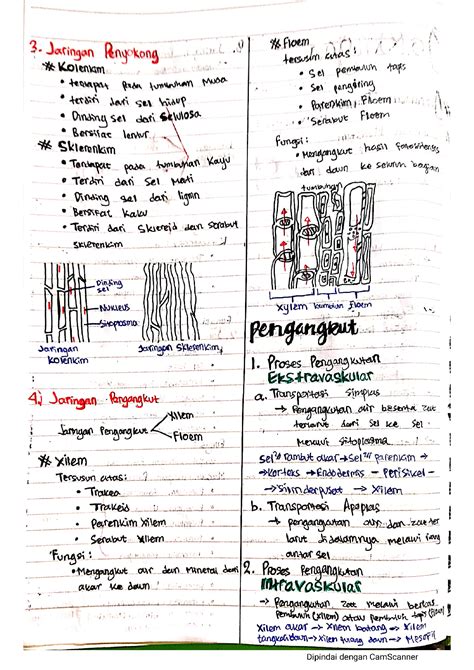 3. Jaringan Penyokong
※ Kolenkim
• terdapat pada tumbuhan Muda
• terdiri dari sel hidup
• Dinding sel dari selulosa
• Bersifat lentur
※ Sklerenkim
• Terdapat pada tumbuhan Kayu
• Terdiri dari Sel Mati
• Dinding sel dari lignin
• Bersifat Kaku
• Terdiri dari Sklereid dan serabut
sklerenkim
Dinding
sel
Nukleus
Sitoplasma
Jaringan
Kolenkim
Jaringan Sklerenkim
4. Jaringan Pengangkut
Jaringan Pengangkut
Xilem
Floem
※ Xilem
Tersusun atas :
• Trakea
• Trakeid
• Parenkim Xilem
• Serabut Xilem
Fungsi :
• Mengangkut air dan Mineral dari
akar ke daun
※ Floem
tersusun atas :
• Sel pembuluh tapis
• Sel pengiring
• Parenkim Floem
• Serabut Floem
Fungsi :
• Mengangkut hasil fotosintesis
dari daun ke seluruh bagian
tumbuhan
Xylem
kambium
Floem
Pengangkut
1. Proses Pengangkutan
Ekstravaskular
a. Transportasi Simplas
→ Pengangkutan air beserta zat
terlarut dari sel ke sel
Melalui sitoplasma
Sel² rambut akar → Sel² Parenkim →
→ Korteks → Endodermis - Perisikel -
→ Xilem
b. Transportasi Apoplas
→ pengangkutan air dan zat ter
larut didalamnya melalui
antar sel
2. Proses Pengangkutan
Intravaskular
→ Pengangkutan zat melalui berkas
pembuluh (Xilem) atau pembuluh tapis
Xilem akar → Xilem batang → Xilem
tangkai daun → Xilem tulang daun → Mesofil
Dipindai dengan CamScanner